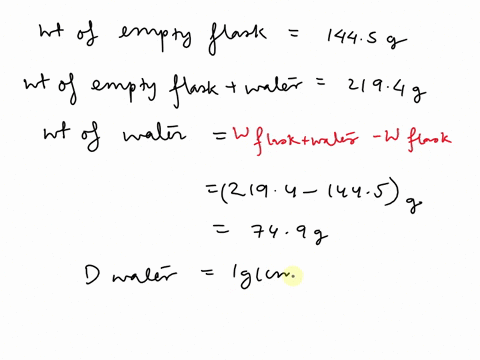 wt of empty flask = 144.5 g
wt of empty flask + water = 219.4 g
wt of water = W flask+water - W flask
= (219.4 - 144.5) g
= 74.9 g
D water = 1g/cm.